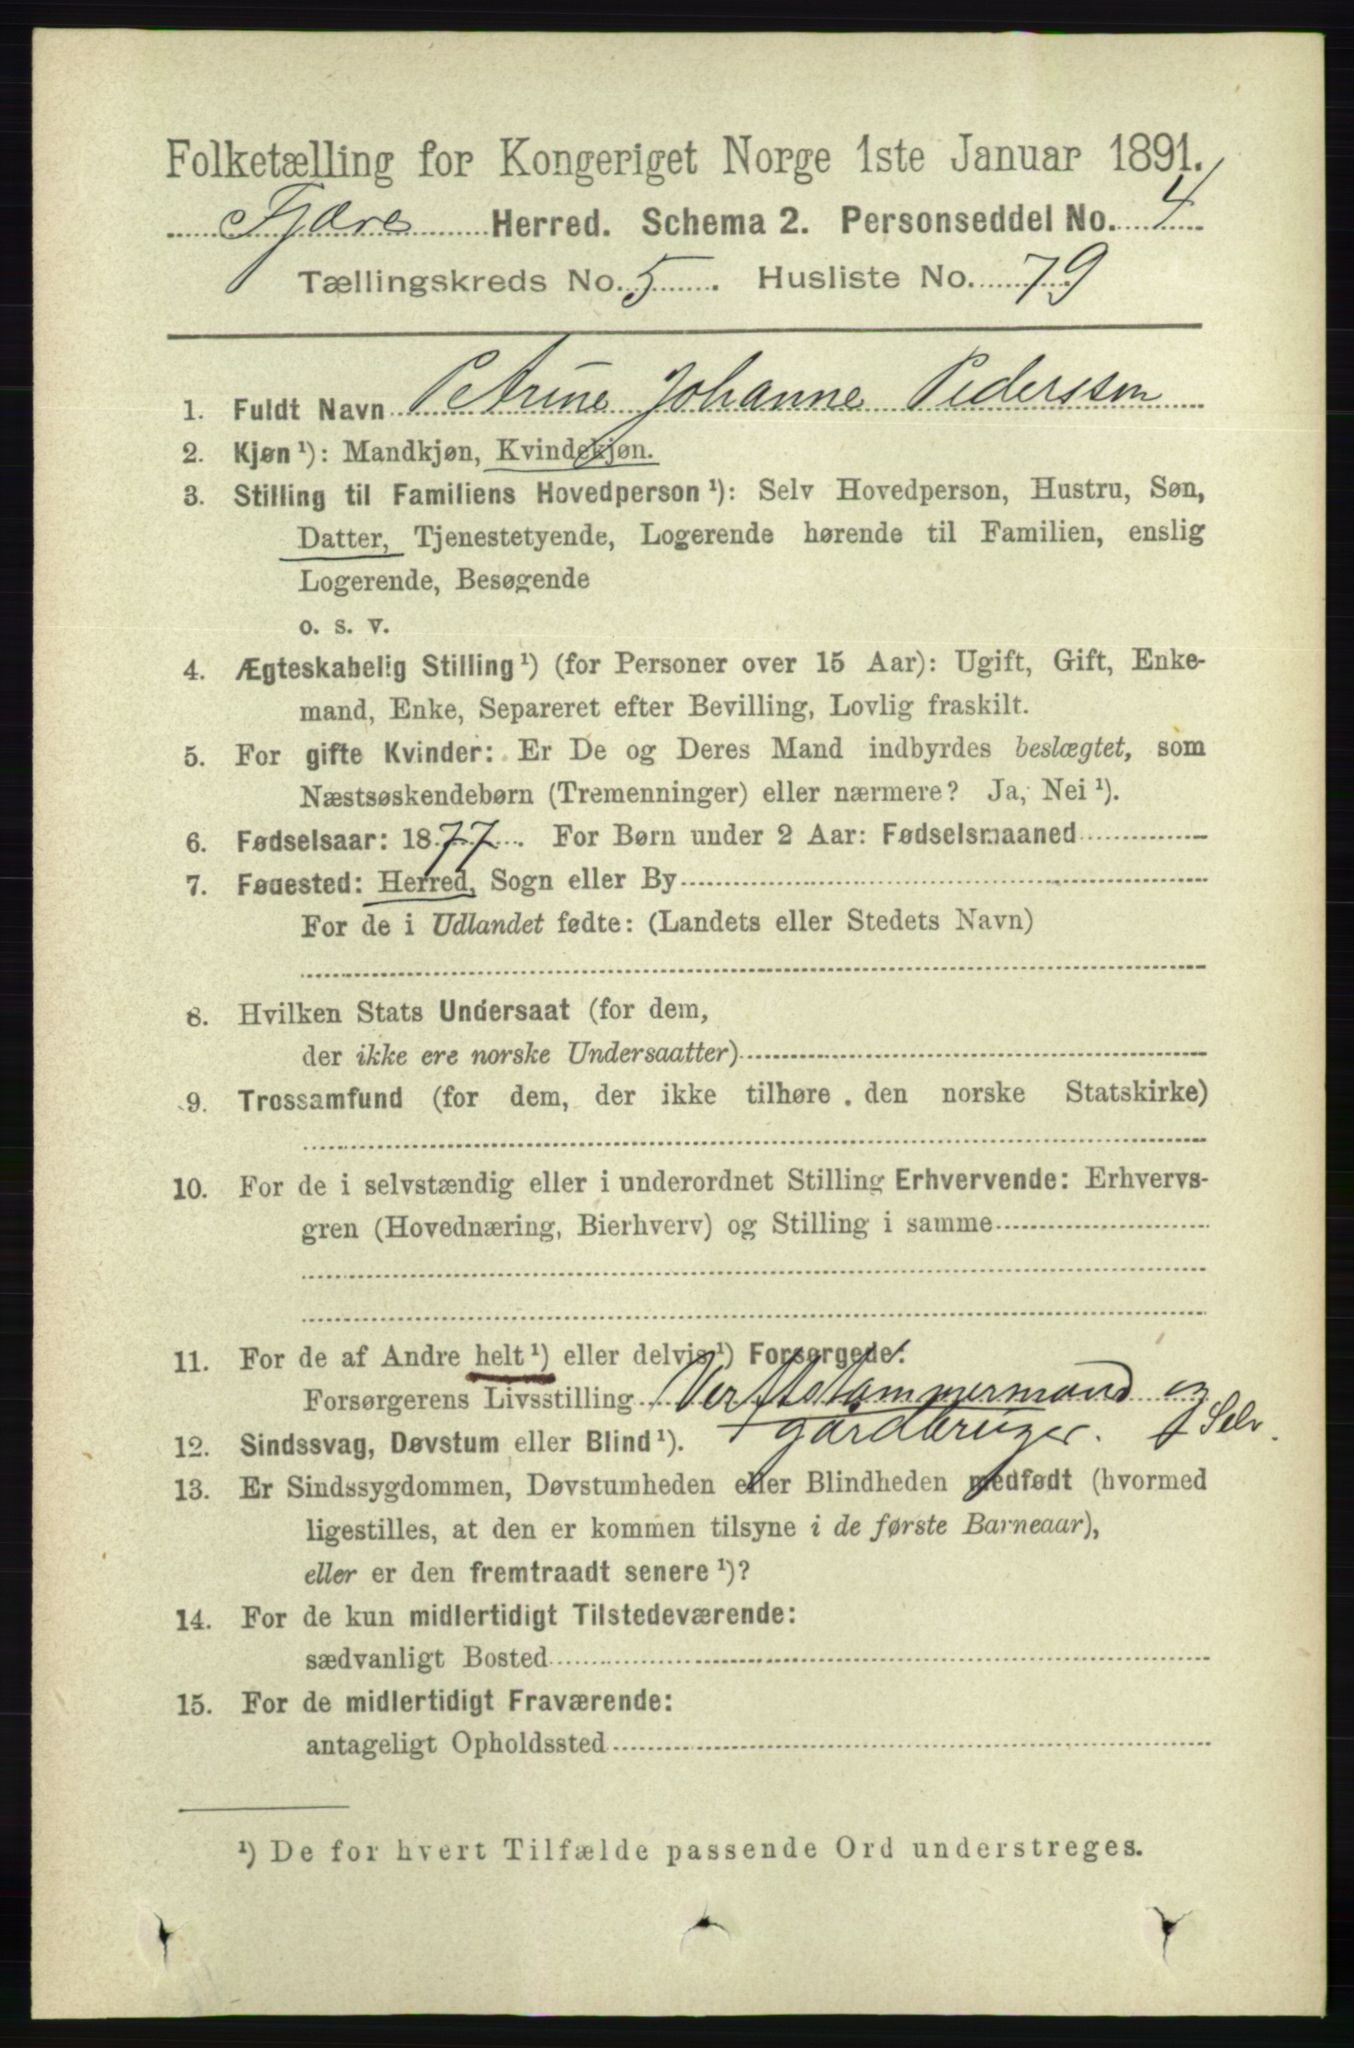 Folketælling for Kongeriget Norge 1ste Januar 1891.
Fjære Herred. Schema 2. Personseddel No. 4
Tællingskreds No. 5. Husliste No. 79
1. Fuldt Navn Petrine Johanne Pederssen
2. Kjøn¹): Mandkjøn, Kvindekjøn.
3. Stilling til Familiens Hovedperson¹): Selv Hovedperson, Hustru, Søn,
Datter, Tjenestetyende, Logerende hørende til Familien, enslig
Logerende, Besøgende
o. s. v.
4. Ægteskabelig Stilling¹) (for Personer over 15 Aar): Ugift, Gift, Enke-
mand, Enke, Separeret efter Bevilling, Lovlig fraskilt.
5. For gifte Kvinder: Er De og Deres Mand indbyrdes beslægtet, som
Næstsøskendebørn (Tremenninger) eller nærmere? Ja, Nei¹).
6. Fødselsaar: 1877. For Børn under 2 Aar: Fødselsmaaned
7. Fødested: Herred, Sogn eller By
For de i Udlandet fødte: (Landets eller Stedets Navn)
8. Hvilken Stats Undersaat (for dem,
der ikke ere norske Undersaatter)
9. Trossamfund (for dem, der ikke tilhøre den norske Statskirke)
10. For de i selvstændig eller i underordnet Stilling Erhvervende: Erhvervs-
gren (Hovednæring, Bierhverv) og Stilling i samme
11. For de af Andre helt¹) eller delvis¹) Forsørgede:
Forsørgerens Livsstilling Verftstømmermand og
gårdbruger. Selv.
12. Sindssvag, Døvstum eller Blind¹).
13. Er Sindssygdommen, Døvstumheden eller Blindheden medfødt (hvormed
ligestilles, at den er kommen tilsyne i de første Barneaar),
eller er den fremtraadt senere¹)?
14. For de kun midlertidigt Tilstedeværende:
sædvanligt Bosted
15. For de midlertidigt Fraværende:
antageligt Opholdssted
¹) De for hvert Tilfælde passende Ord understreges.